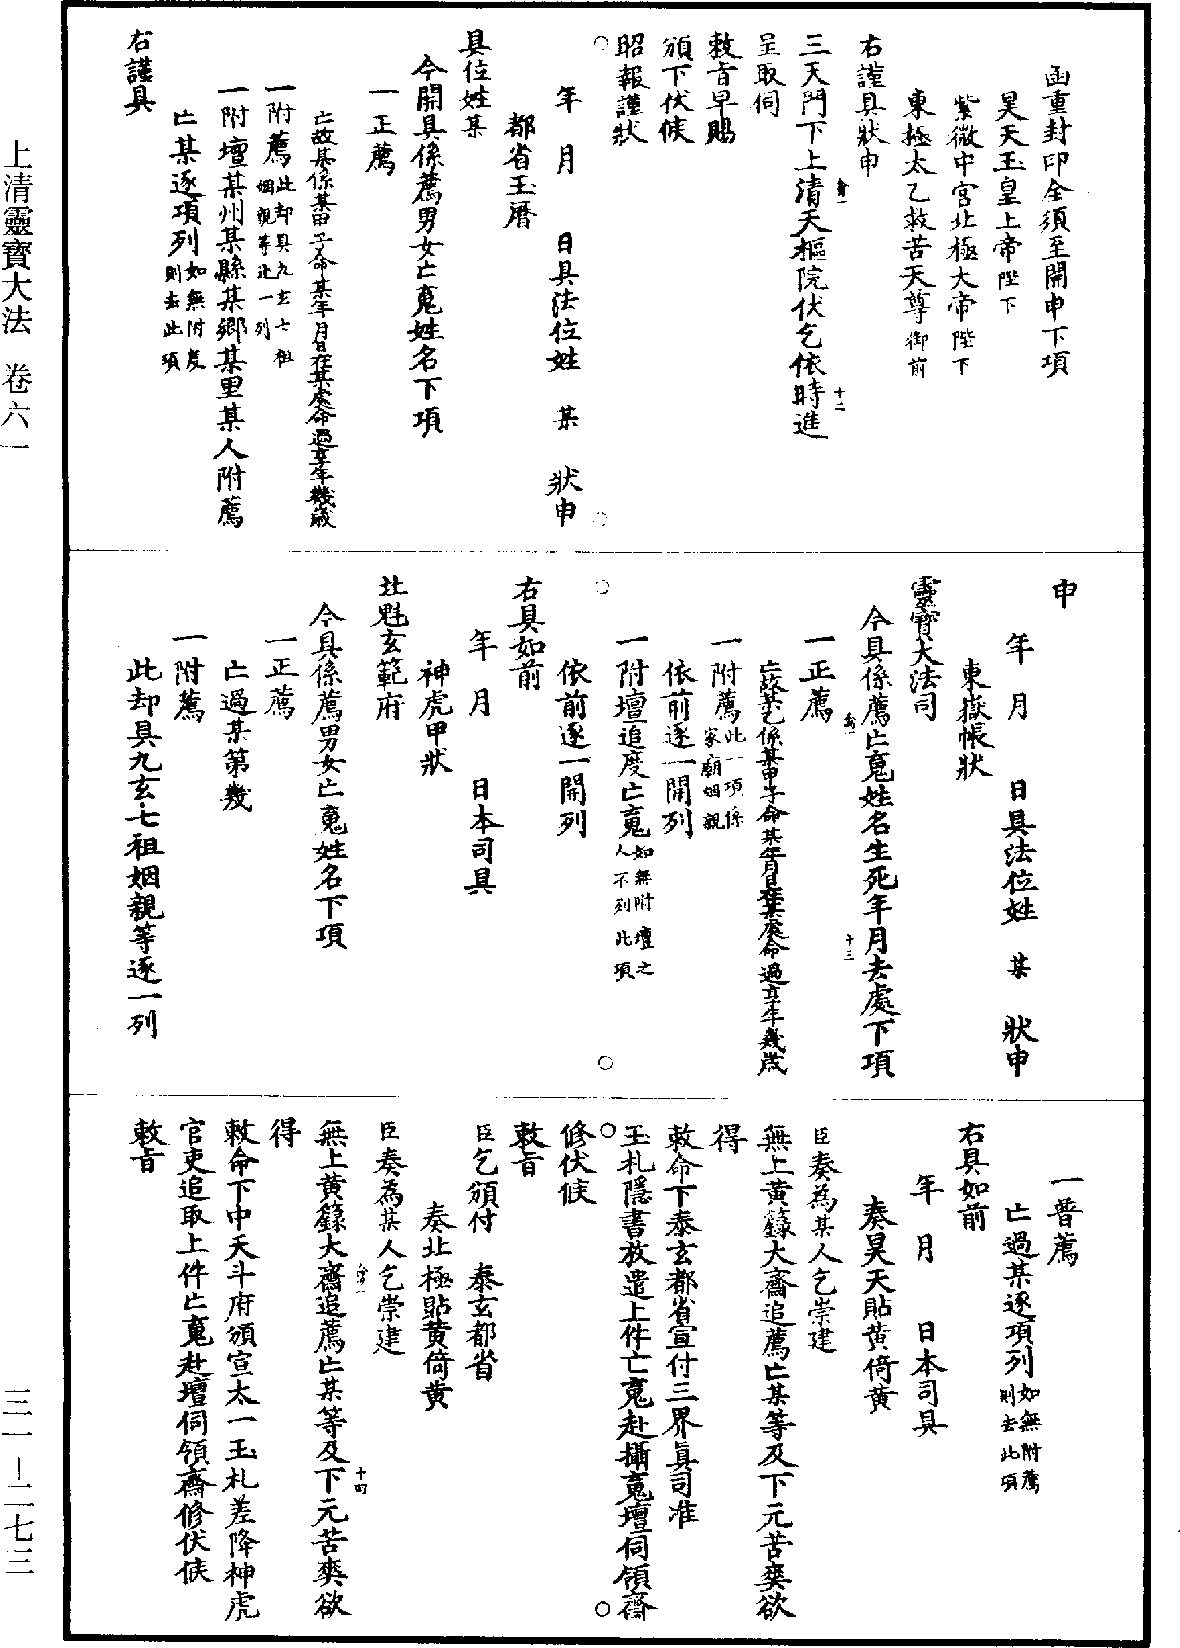 函重封印全須至開申下項
昊天玉皇上帝陛下
紫微中宮北極大帝陛下
東極太乙救苦天尊御前
右謹具狀申
三天門下上清天樞院伏乞依時進
呈取伺
敕旨早賜
頒下伏候
昭報謹狀
年 月 日具法位姓 某 狀申
都省玉曆
具位姓某
今開具係薦男女亡䰟姓名下項
一正薦
亡故某係某甲子命某年月日在某處命過享年幾歲
一附薦此却具九玄七祖
姻親等逐一列
一附壇某州某縣某鄉某里某人附薦
亡某逐項列如無附度
則去此項
右謹具
申
年 月 日具法位姓 某 狀申
東嶽帳狀
靈寶大法司
今具係薦亡䰟姓名生死年月去處下項
一正薦
亡故某乙係某甲子命某年月日在某處命過享年幾歲
一附薦此一項係
家廟姻親
依前逐一開列
一附壇追度亡䰟如無附壇之
人不列此項
依前逐一開列
右具如前
年 月 日本司具
神虎甲狀
北魁玄範府
今具係薦男女亡䰟姓名下項
一正薦
亡過某第幾
一附薦
此却具九玄七祖姻親等逐一列
一普薦
亡過某逐項列如無附薦
則去此項
右具如前
年 月 日本司具
奏昊天貼黃倚黃
臣奏為某人乞崇建
無上黃籙大齋追薦亡某等及下元苦爽欲
得
敕命下泰玄都省宣付三界真司准
玉札隱書放遣上件亡䰟赴攝䰟壇伺領齋
修伏候
敕旨
臣乞頒付 泰玄都省
奏北極貼黃倚黃
臣奏為某人乞崇建
無上黃籙大齋追薦亡某等及下元苦爽欲
得
敕命下中天斗府頒宣太一玉札差降神虎
官吏追取上件亡䰟赴壇伺領齋修伏候
敕旨
上清靈寶大法 卷六一
三一–二七三
十二
十三
十四